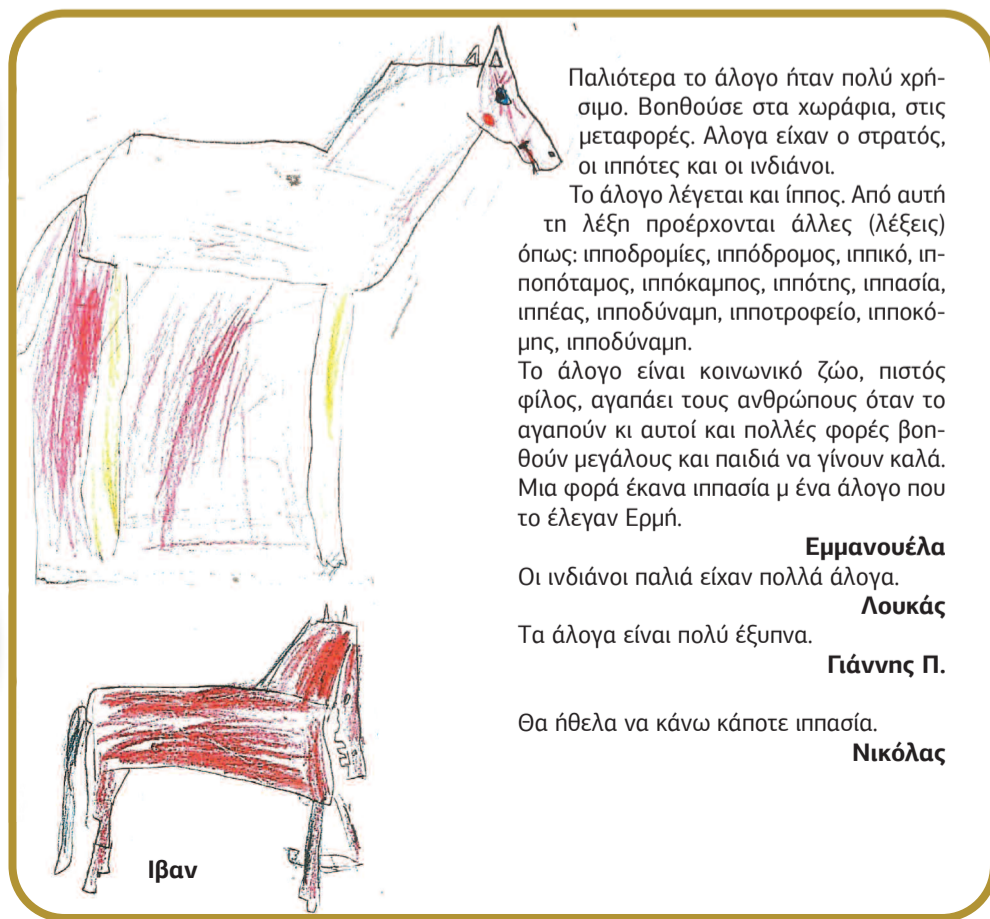 Παλιότερα το άλογο ήταν πολύ χρή-
σιμο. Βοηθούσε στα χωράφια, στις
μεταφορές. Αλογα είχαν ο στρατός,
οι ιππότες και οι ινδιάνοι.
Το άλογο λέγεται και ίππος. Από αυτή
τη λέξη προέρχονται άλλες (λέξεις)
όπως: ιπποδρομίες, ιππόδρομος, ιππικό, ιπ-
ποπόταμος, ιππόκαμπος, ιππότης, ιππασία,
ιππέας, ιπποδύναμη, ιπποτροφείο, ιπποκό-
μης, ιπποδύναμη.
Το άλογο είναι κοινωνικό ζώο, πιστός
φίλος, αγαπάει τους ανθρώπους όταν το
αγαπούν κι αυτοί και πολλές φορές βοη-
θούν μεγάλους και παιδιά να γίνουν καλά.
Μια φορά έκανα ιππασία μ ένα άλογο που
το έλεγαν Ερμή.
Εμμανουέλα
Οι ινδιάνοι παλιά είχαν πολλά άλογα.
Λουκάς
Τα άλογα είναι πολύ έξυπνα.
Γιάννης Π.
Θα ήθελα να κάνω κάποτε ιππασία.
Νικόλας
Ιβαν